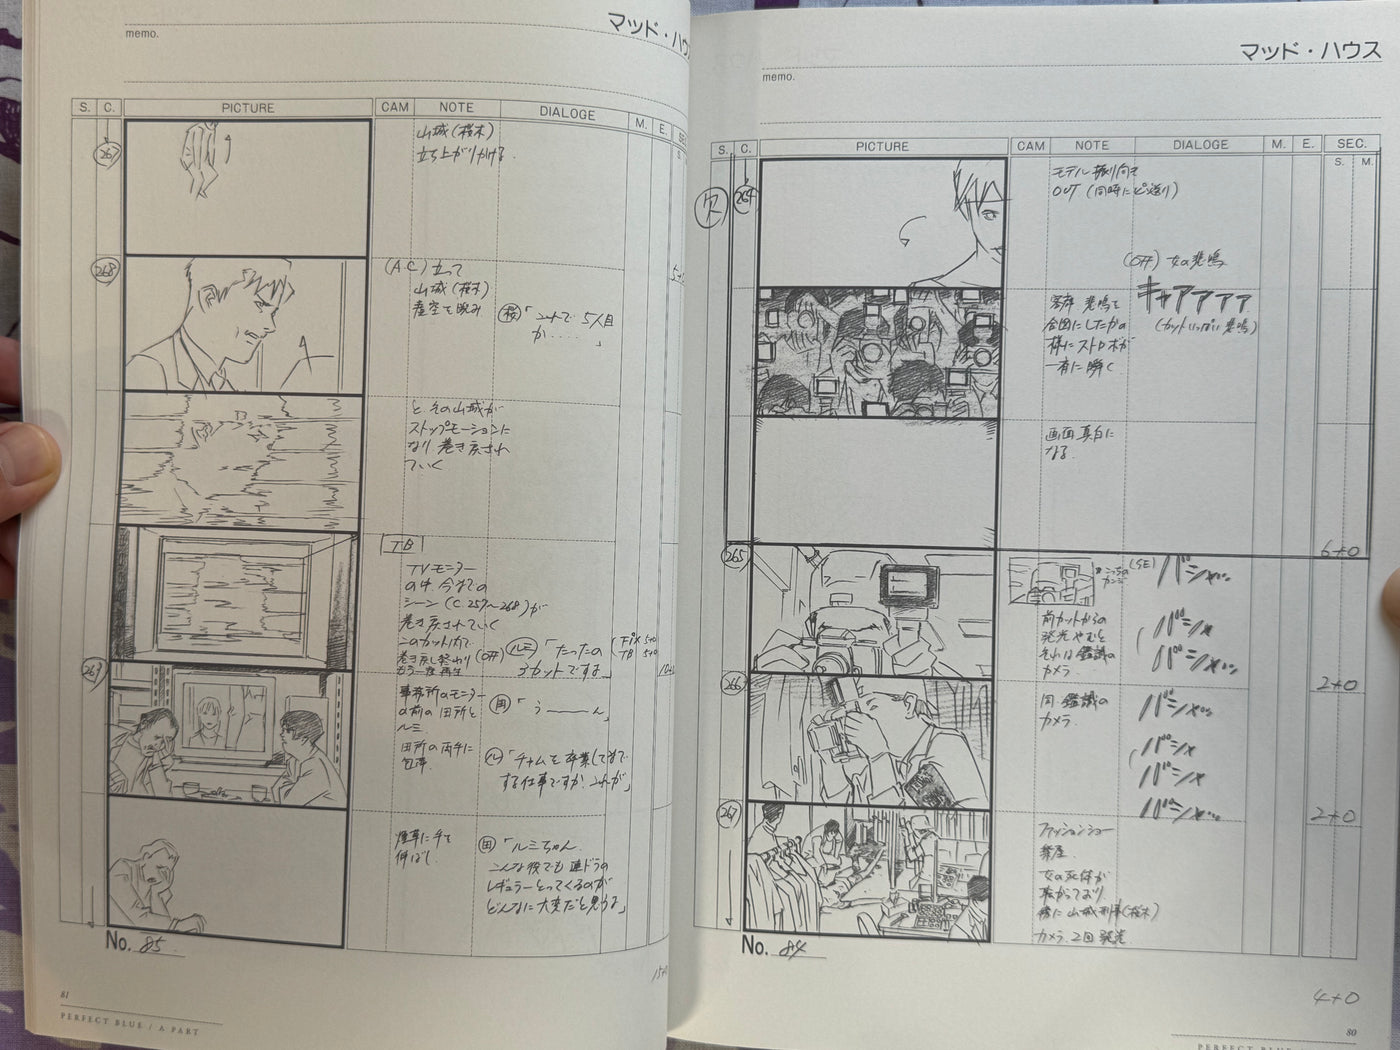 マッド・ハウス
memo.
S.
C.
PICTURE
CAM
NOTE
DIALOGE
M.
E.
SEC.
S.
M.
欠
264
モデル 振り向いて
OUT (同時にピン送り)
(OFF) 女の悲鳴
キャアアアア
(カットいっぱい悲鳴)
客席 悲鳴を
合図にしたかの
様にストロボが
一斉に瞬く
画面 真白に
なる
6+0
265
(SE)
バシャッ
バシャ
バシャッ
前カットからの
発光やむと
それは鑑識の
カメラ
2+0
266
同 鑑識の
カメラ
バシャッ
バシャ
バシャ
バシャッ
2+0
267
ファッションショー
楽屋
女の死体が
転がっており
傍に山城刑事(桜木)
カメラ 2回発光
No. 84
4+0
80
マッド・ハウ
memo.
S.
C.
PICTURE
CAM
NOTE
DIALOGE
M.
E.
267
山城(桜木)
立ち上がりかける
268
(A.C) 立って
山城(桜木)
虚空を睨み
桜「これで 5人目
か.....」
と その山城が
ストップモーションに
なり 巻き戻され
ていく
TB
TVモニター
の中、今までの
シーン(C.257〜268)が
巻き戻されていく
このカット内で
巻き戻し終わり
もう一度 再生
(OFF) ルミ「たったの
3カットですよ」
(Fix 5+0
TB 5+0
269
事務所のモニター
の前の田所と
ルミ
田所の両手に
包帯
田「うーーん」
ル「チャムを卒業してまで
する仕事ですか? これが」
煙草に手を
伸ばし
田「ルミちゃん
こんな役でも連ドラの
レギュラーとってくるのが
どんなに大変だと思うよ」
No. 85
81
PERFECT BLUE / A PART